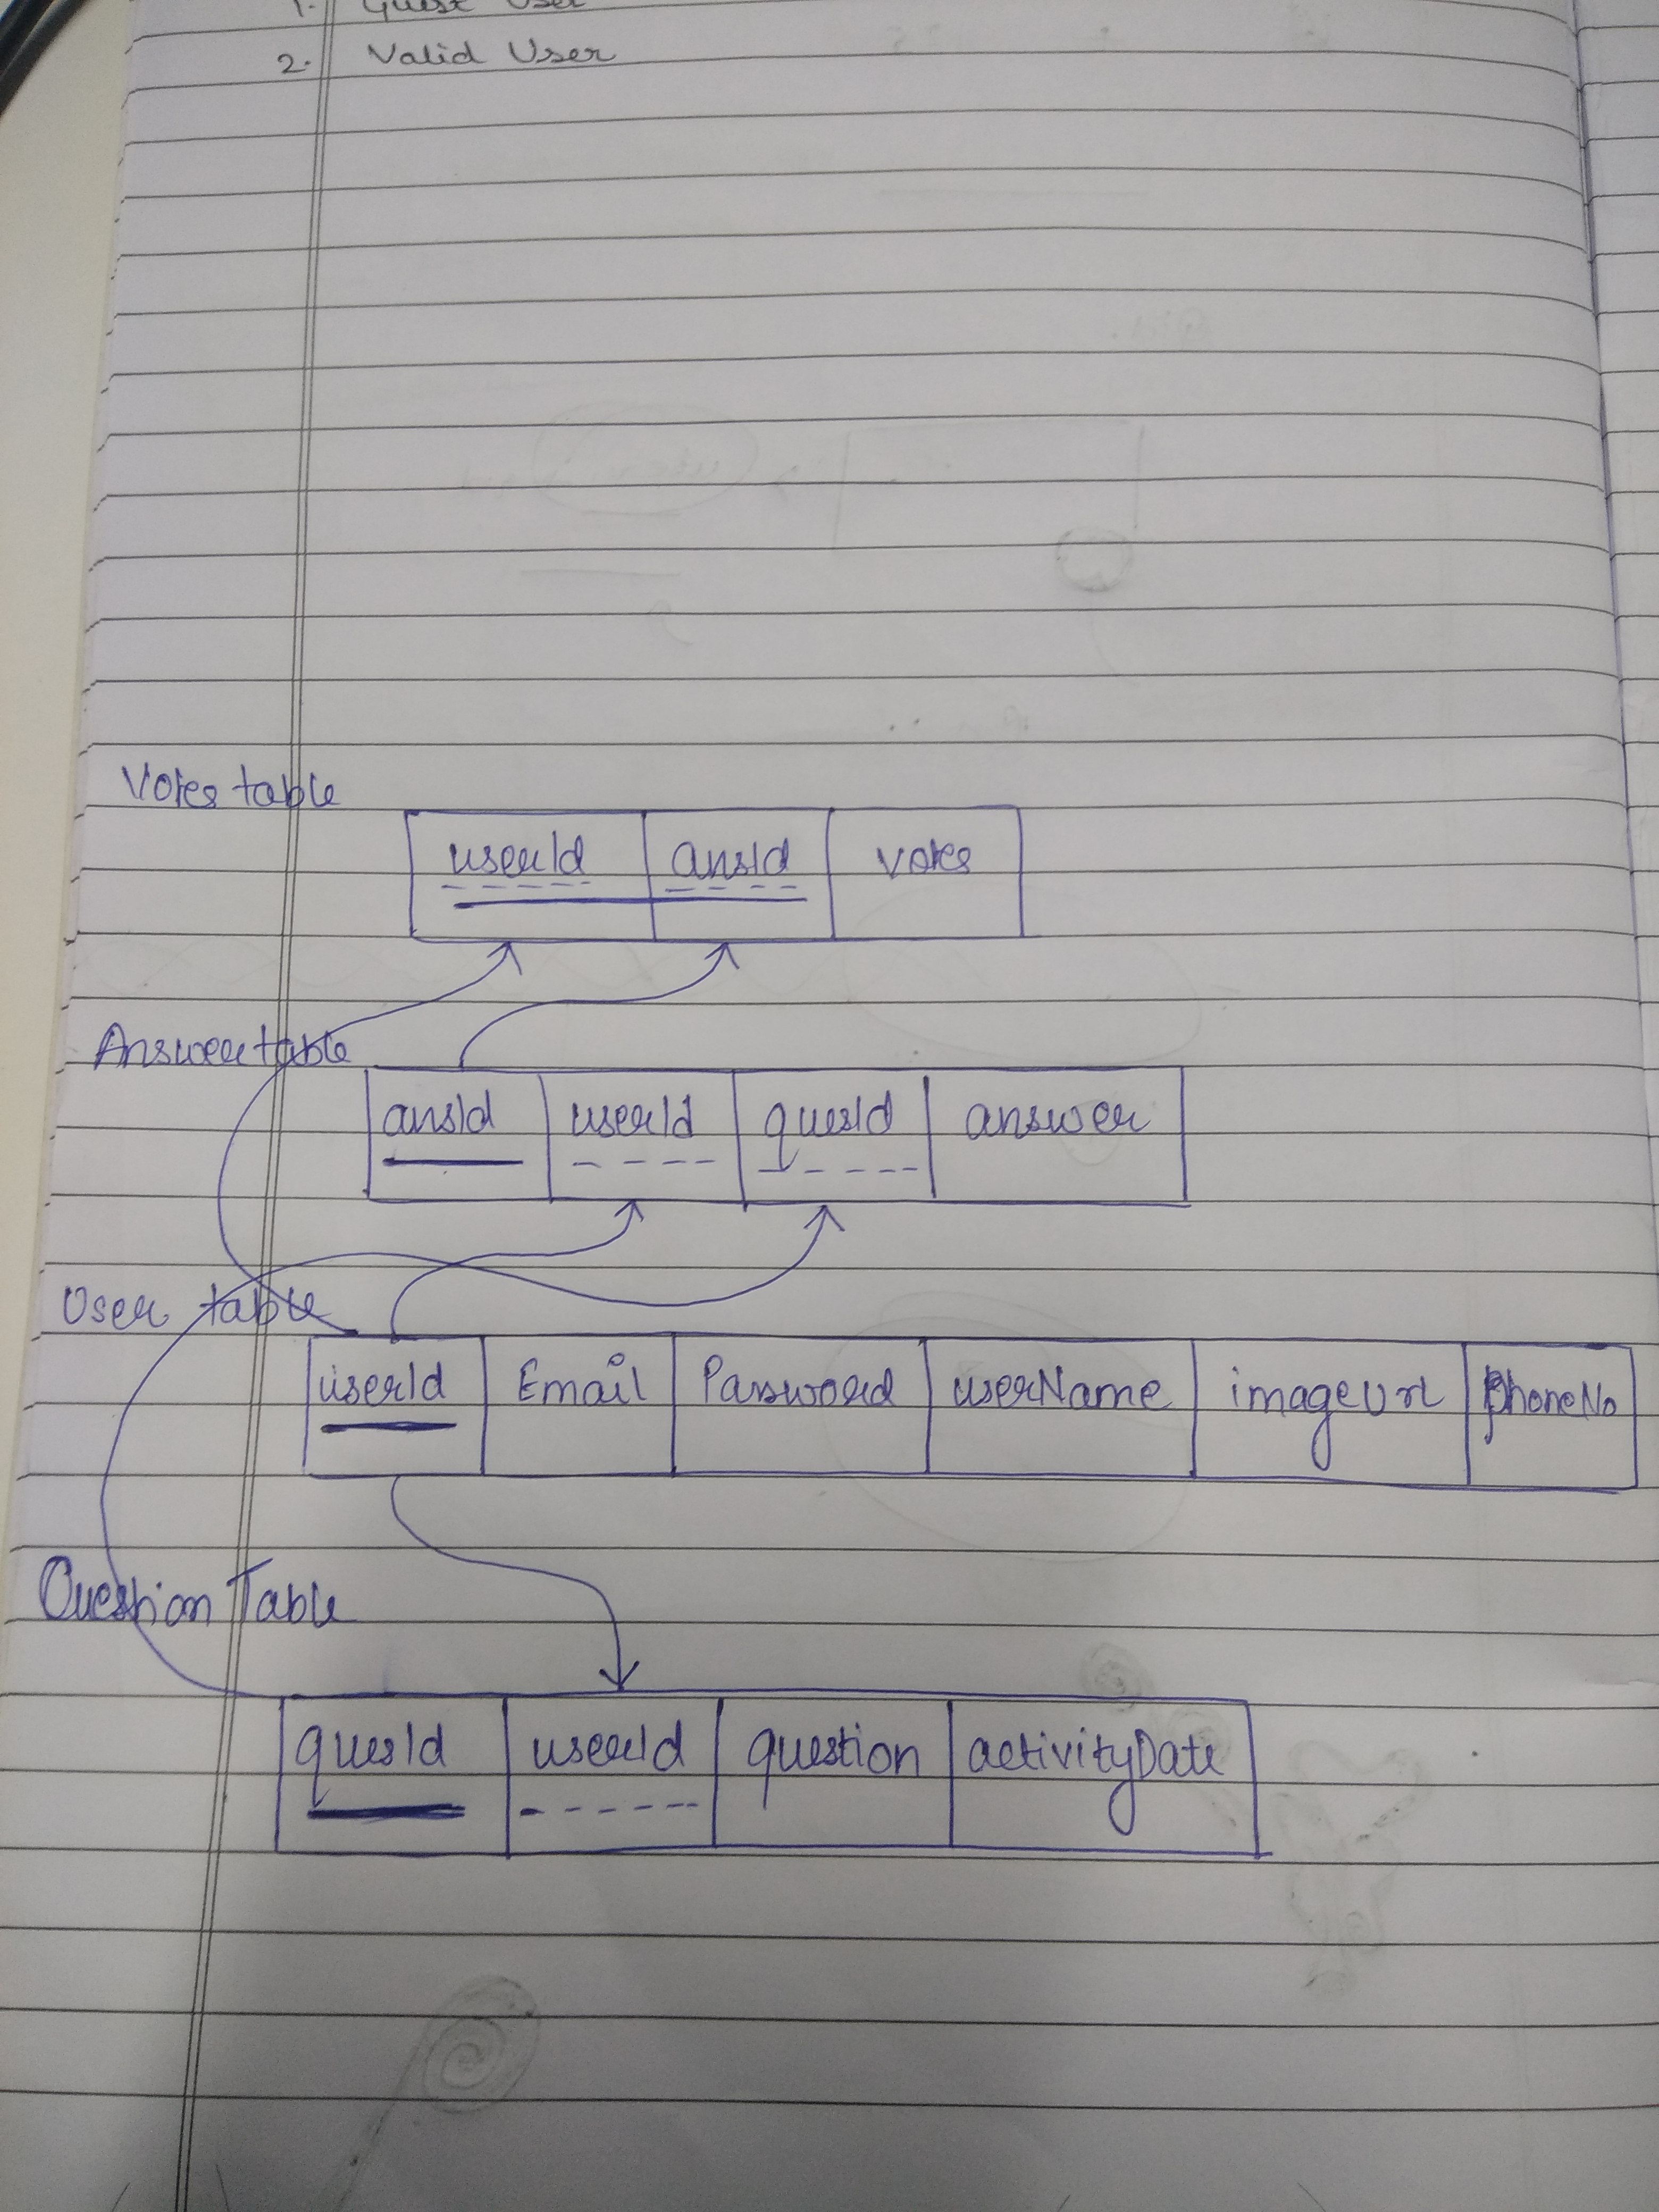 1. Guest User
2. Valid User
Votes table
userId ansId votes
Answer table
ansId userId quesId answer
User table
userId Email Password userName imageUrl phoneNo
Question Table
quesId userId question activityDate